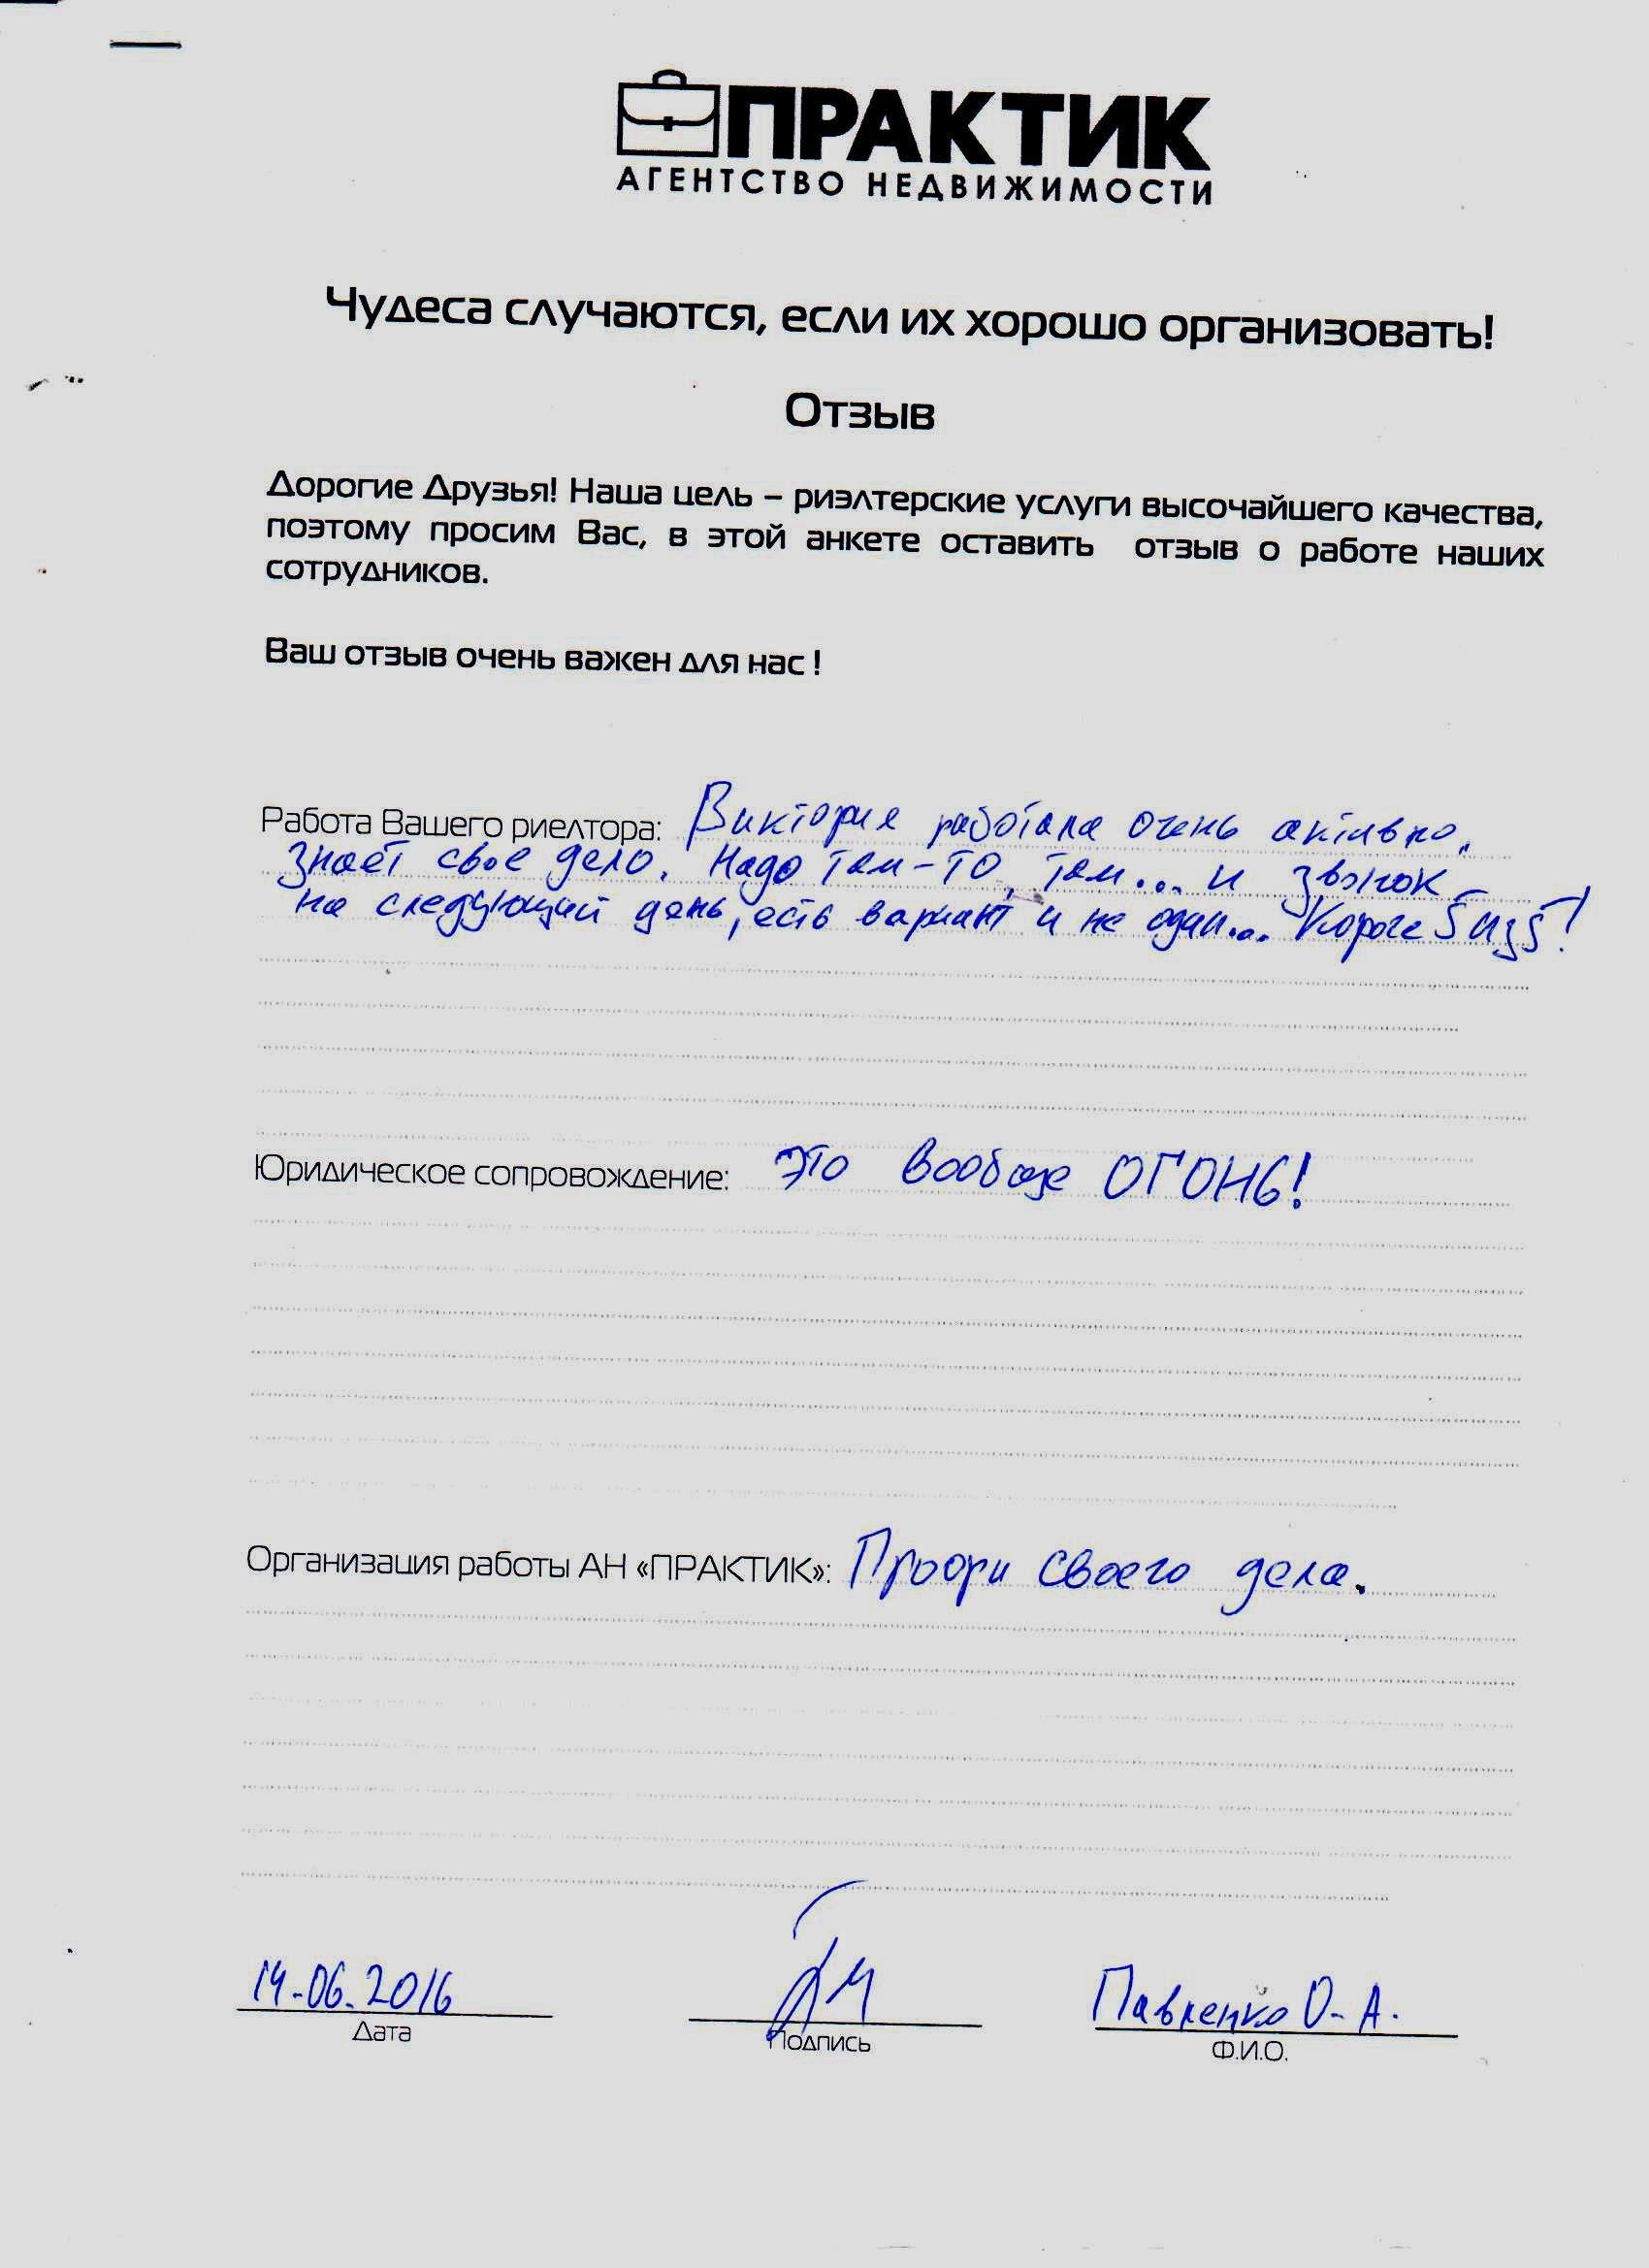 ПРАКТИК
АГЕНТСТВО НЕДВИЖИМОСТИ
Чудеса случаются, если их хорошо организовать!
Отзыв
Дорогие Друзья! Наша цель – риэлтерские услуги высочайшего качества,
поэтому просим Вас, в этой анкете оставить отзыв о работе наших
сотрудников.
Ваш отзыв очень важен для нас !
Работа Вашего риелтора: Виктория работала очень активно,
знает свое дело. Надо там-то, там... и звонок
на следующий день, есть вариант и не один... Короче 5 из 5!
Юридическое сопровождение: Это вообще ОГОНЬ!
Организация работы АН «ПРАКТИК»: Профи своего дела.
14.06.2016 Павленко О.А.
Дата Подпись Ф.И.О.